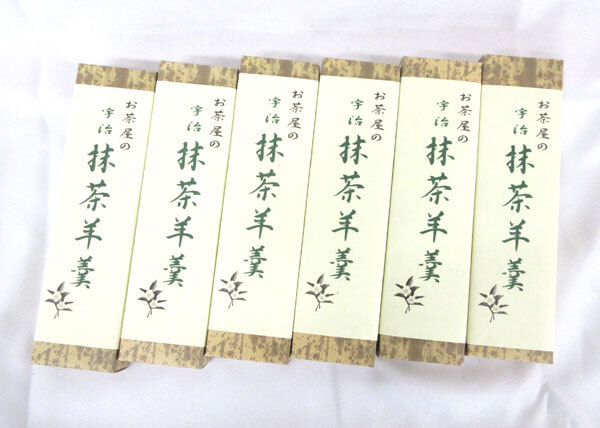 お茶屋の
宇治
抹茶羊羹
お茶屋の
宇治
抹茶羊羹
お茶屋の
宇治
抹茶羊羹
お茶屋の
宇治
抹茶羊羹
お茶屋の
宇治
抹茶羊羹
お茶屋の
宇治
抹茶羊羹